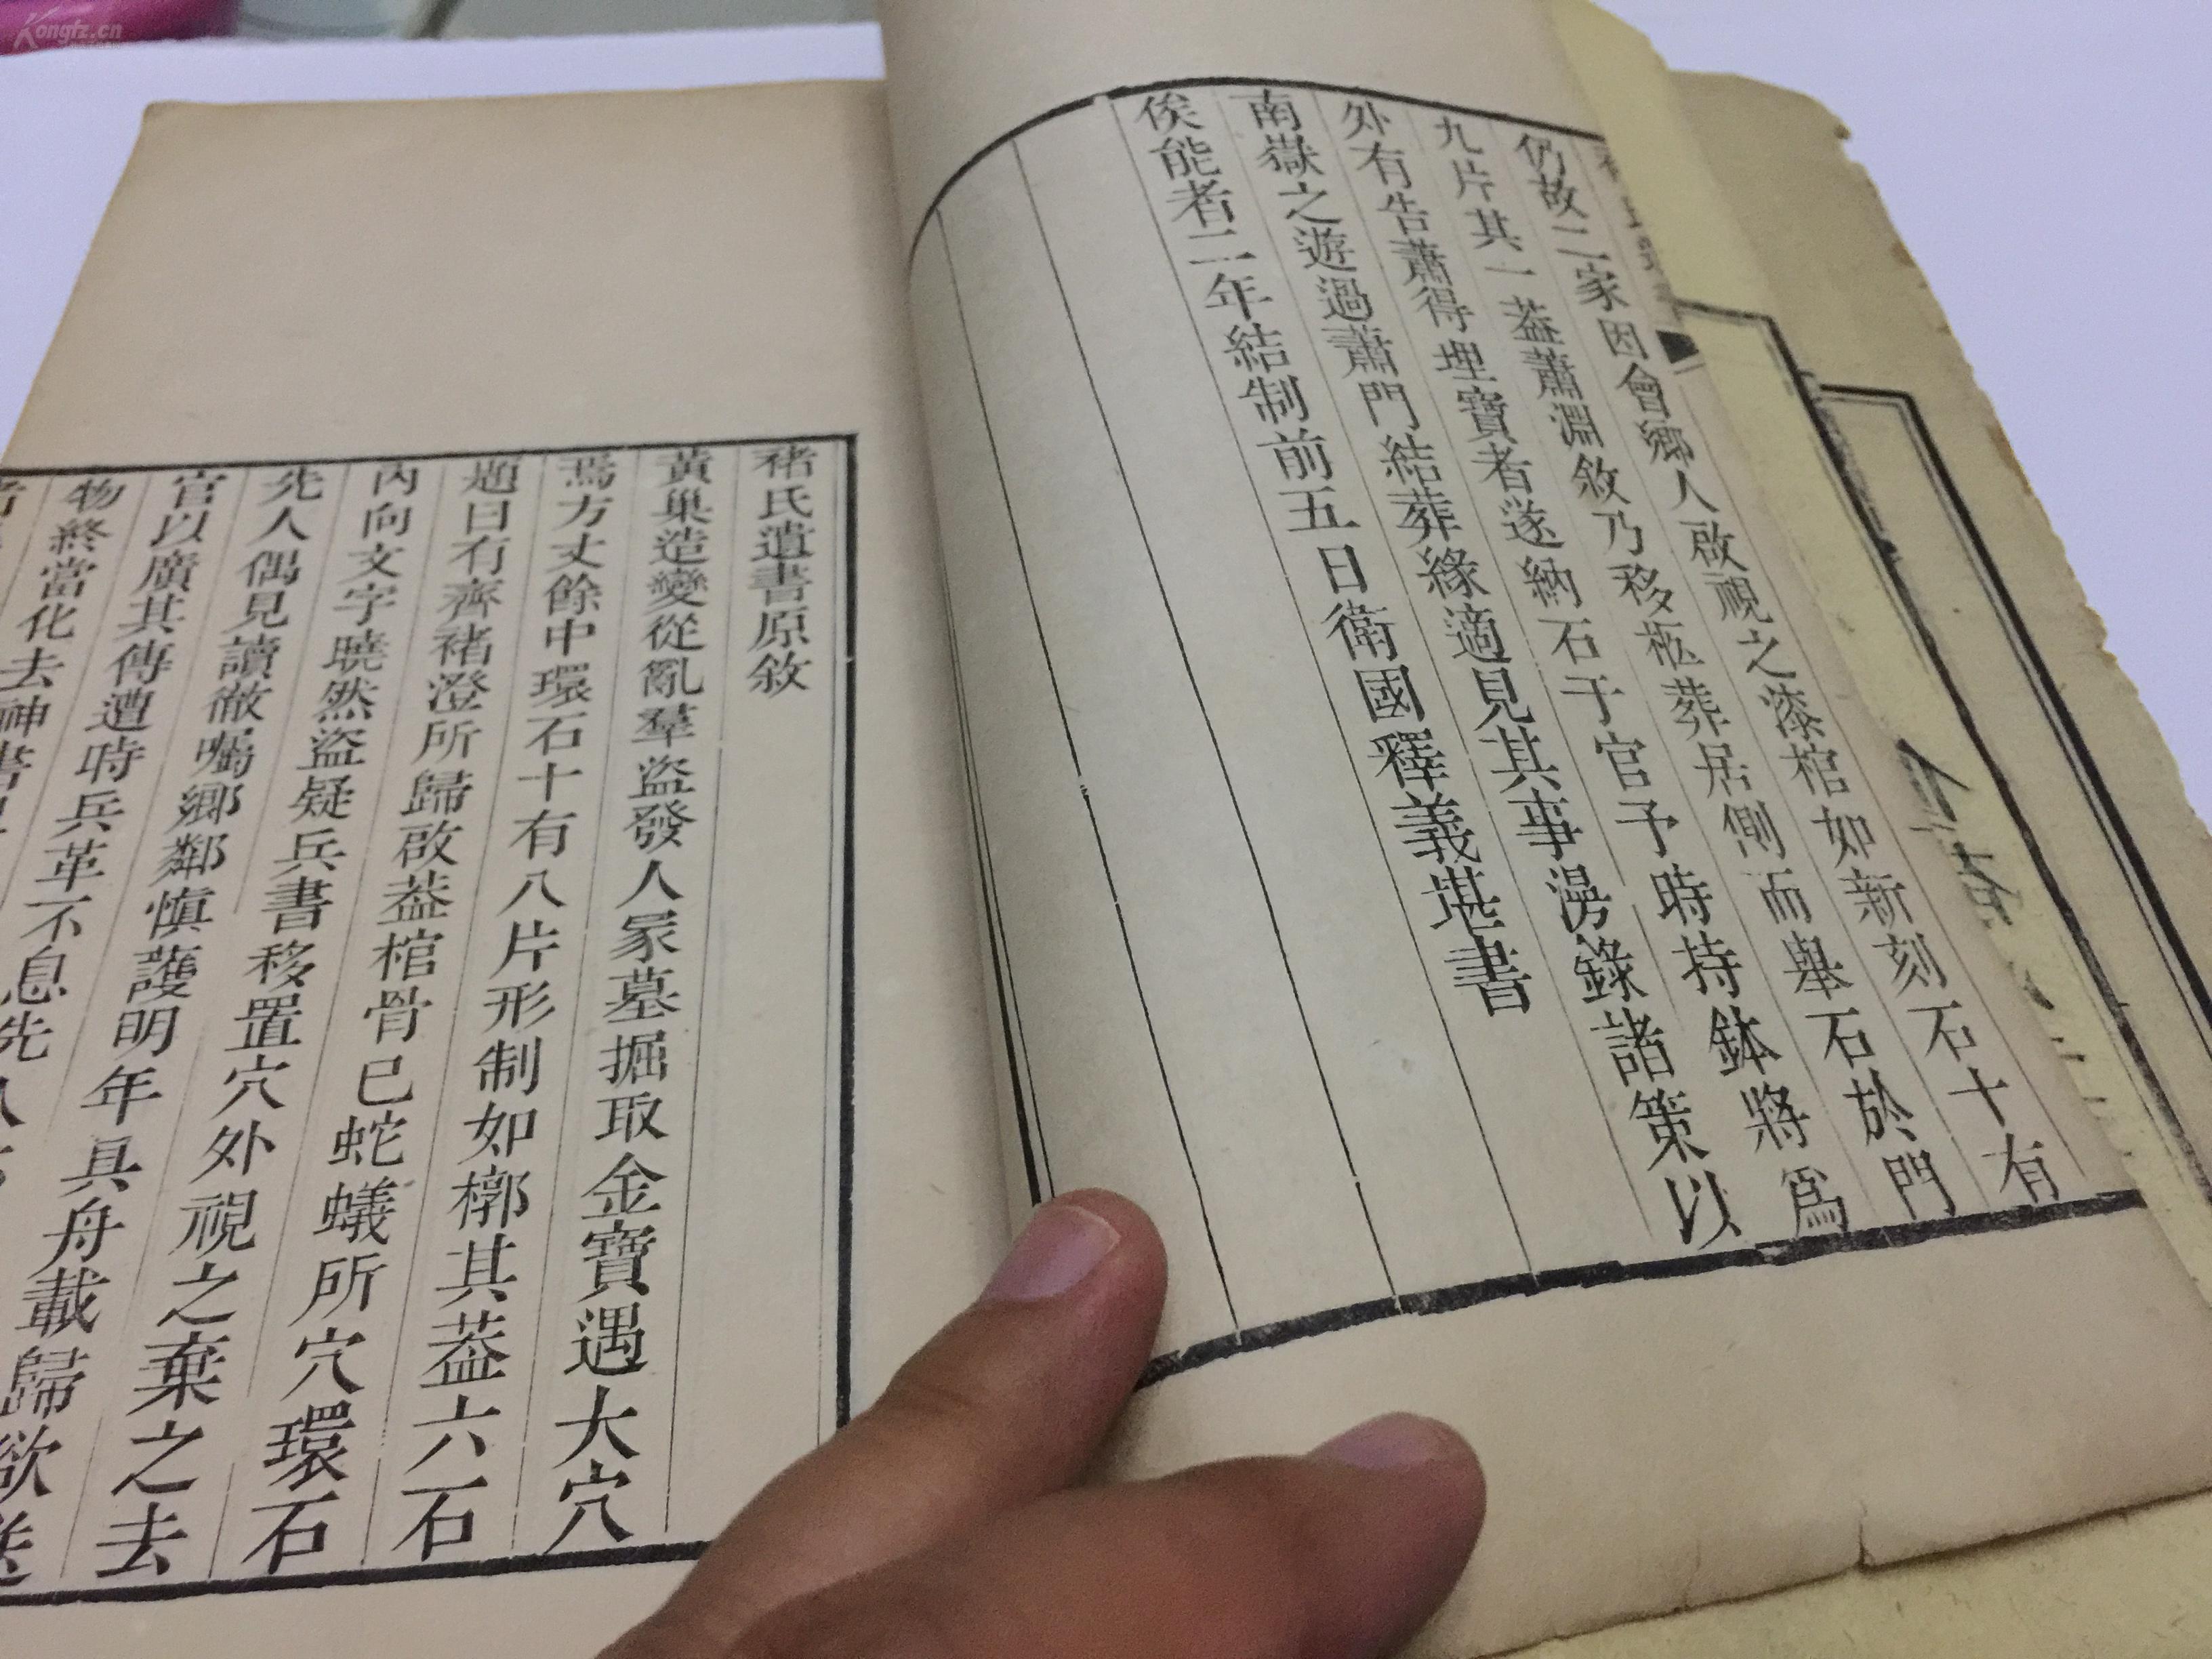 仍故二家因會鄉人啟視之漆棺如新刻石十有
九片其一葢蕭淵敘乃移柩葬居側而舉石於門
外有告蕭得埋寶者遂納石于官予時持鉢將爲
南嶽之遊過蕭門結葬緣適見其事湯錄諸策以
俟能者二年結制前五日衛國釋義堪書
褚氏遺書原敘
黃巢造變從亂羣盜發人冢墓掘取金寶遇大穴
焉方丈餘中環石十有八片形制如槨其葢六石
題曰有齊褚澄所歸啟葢棺骨已蛇蟻所穴環石
內向文字曉然盜疑兵書移置穴外視之棄之去
先人偶見讀徹囑鄉鄰慎護明年具舟載歸欲送
官以廣其傳遭時兵革不息先
物終當化去神書
Kongfz.cn